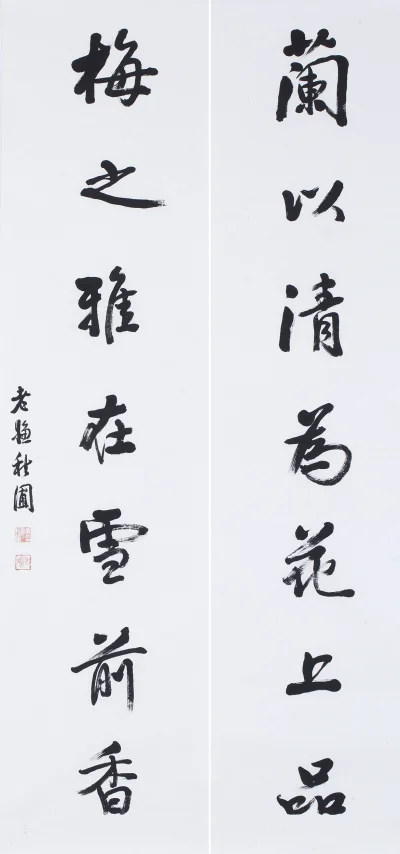 蘭以清為花上品
梅之雅在雪前香
老滕秋圃